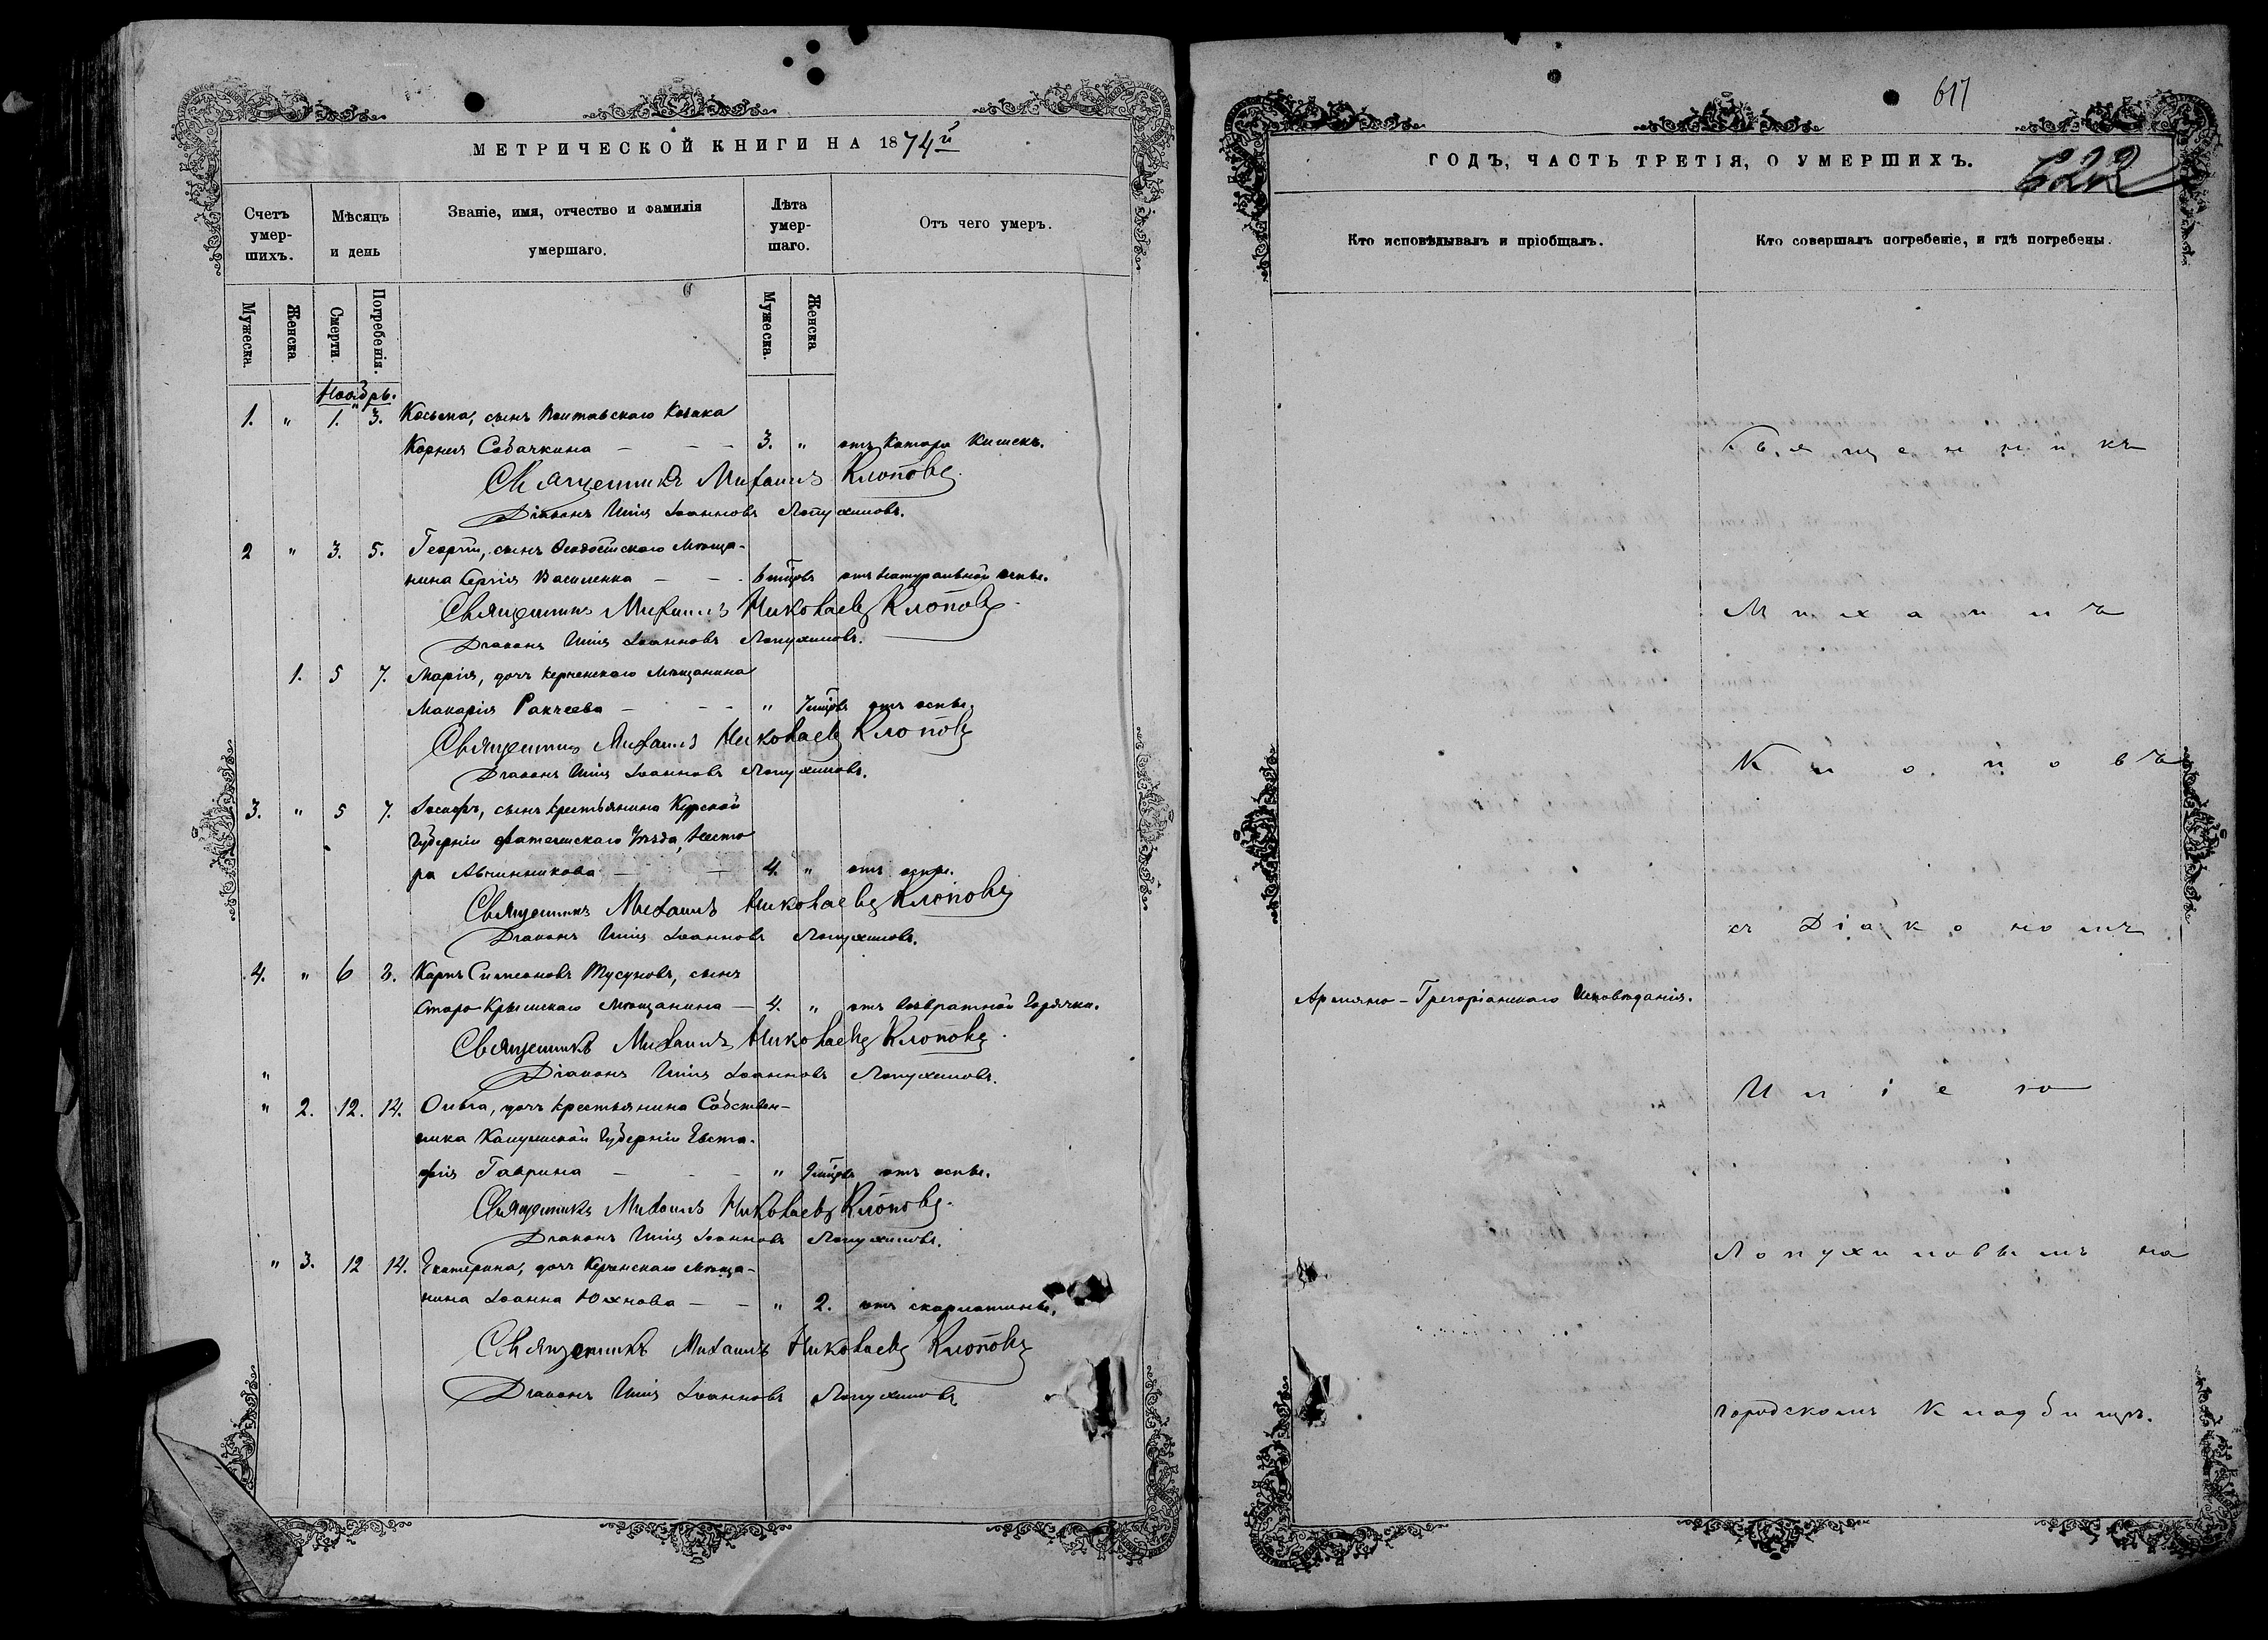 МЕТРИЧЕСКОЙ КНИГИ НА 1874й
Счетъ умер-шихъ.
Мѣсяцъ и день
Званіе, имя, отчество и фамилія умершаго.
Лѣта умер-шаго.
Отъ чего умеръ.
Мужеска.
Женска.
Смерти.
Погребенія.
Мужеска.
Женска
Ноябрь.
1. " 1. 3. Косьма, сынъ Полтавскаго Козака
Корнія Собачкина — — — 3. " отъ катара кишекъ.
Священникъ Михаилъ Клоповъ
Діаконъ Илія Іоанновъ Лопухиновъ.
2 " 3. 5. Георгій, сынъ Ѳеодосійскаго Мѣща-
нина Сергія Василенка — — 6 мцовъ отъ натуральной оспы.
Священникъ Михаилъ Николаевъ Клоповъ
Діаконъ Илія Іоанновъ Лопухиновъ.
1. 5 7. Марія, дочь Керченскаго Мѣщанина
Макарія Ракчеева — — — " 7 мцовъ отъ оспы.
Священникъ Михаилъ Николаевъ Клоповъ
Діаконъ Илія Іоанновъ Лопухиновъ.
3. " 5 7. Іосафъ, сынъ крестьянина Курской
Губерніи Фатежскаго Уѣзда, Несто
ра Авчинникова — — 4. " отъ оспы.
Священникъ Михаилъ Николаевъ Клоповъ
Діаконъ Илія Іоанновъ Лопухиновъ.
4. " 6 8. Карпъ Симеоновъ Тусуновъ, сынъ
Старо-Крымскаго Мѣщанина — 4. " отъ возвратной горячки.
Священникъ Михаилъ Николаевъ Клоповъ
" Діаконъ Илія Іоанновъ Лопухиновъ.
" 2. 12. 14. Ольга, дочь крестьянина Собствен-
ника Калужской Губерніи Евста-
фія Гаврина — — — " 9 мцовъ отъ оспы.
Священникъ Михаилъ Николаевъ Клоповъ
Діаконъ Илія Іоанновъ Лопухиновъ.
" 3. 12 14. Екатерина, дочь Керченскаго Мѣща-
нина Іоанна Южнова — — " 2. отъ скарлатины.
Священникъ Михаилъ Николаевъ Клоповъ
Діаконъ Илія Іоанновъ Лопухиновъ
617
ГОДЪ, ЧАСТЬ ТРЕТІЯ, О УМЕРШИХЪ.
622
Кто исповѣдывалъ и пріобщалъ.
Кто совершалъ погребеніе, и гдѣ погребены.
Священникъ
Михаилъ
Клоповъ
съ Діакономъ
Армяно-Грегоріанскаго Исповѣданія.
Иліею
Лопухиновымъ на
городскомъ Кладбищѣ.